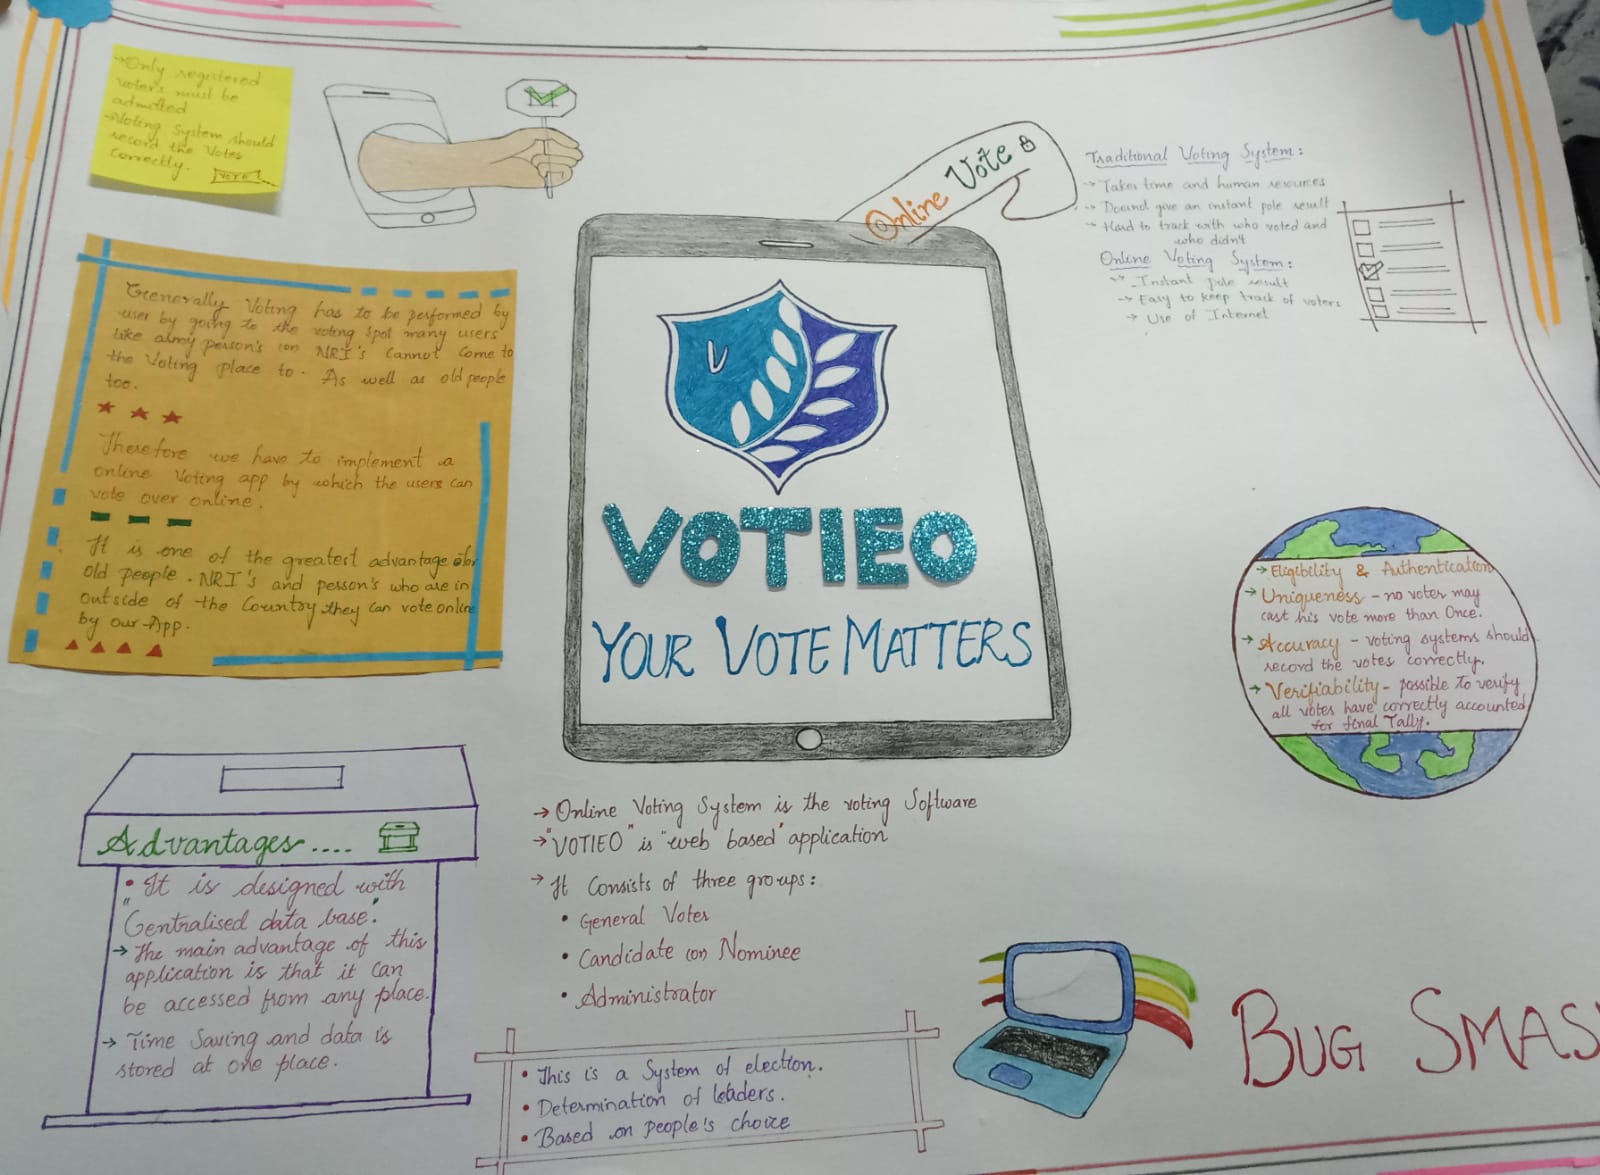 →Only registered
voter's must be
admitted
→Voting System should
record the Votes
Correctly.
VOTE
Online Vote
Traditional Voting System:
→ Takes time and human resources
→ Doesnot give an instant pole result
→ Hard to track with who voted and
who didn't
Online Voting System:
→ Instant pole result
→ Easy to keep track of voters
→ Use of Internet
Generally Voting has to be performed by
user by going to the voting spot many users
like almy person's (or) NRI's Cannot Come to
the Voting place to. As well as old people
too.
Therefore we have to implement a
online Voting app by which the users can
vote over online.
It is one of the greatest advantage for
old people. NRI's and person's who are in
outside of the Country they can vote online
by our App.
V
VOTIEO
YOUR VOTE MATTERS
→ Eligibility & Authentication
→ Uniqueness - no voter may
cast his vote more than Once.
→ Accuracy - voting systems should
record the votes correctly.
→ Verifiability - possible to verify
all votes have correctly accounted
for final Tally.
Advantages....
• It is designed with
"Centralised data base".
→ The main advantage of this
application is that it can
be accessed from any place.
→ Time Saving and data is
stored at one place.
→ Online Voting System is the voting Software
→ "VOTIEO" is "web based" application
→ It Consists of three groups:
• General Voter
• Candidate (or) Nominee
• Administrator
• This is a System of election.
• Determination of leaders.
• Based on people's choice
BUG SMAS